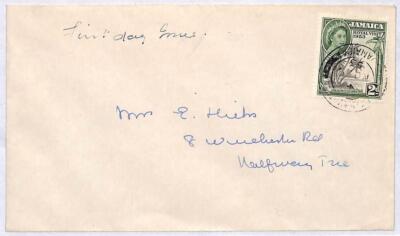 First day Cover.
JAMAICA
ROYAL VISIT
1953
2D
Mrs E. Hibbs
8 Winchester Rd
Halfway Tree